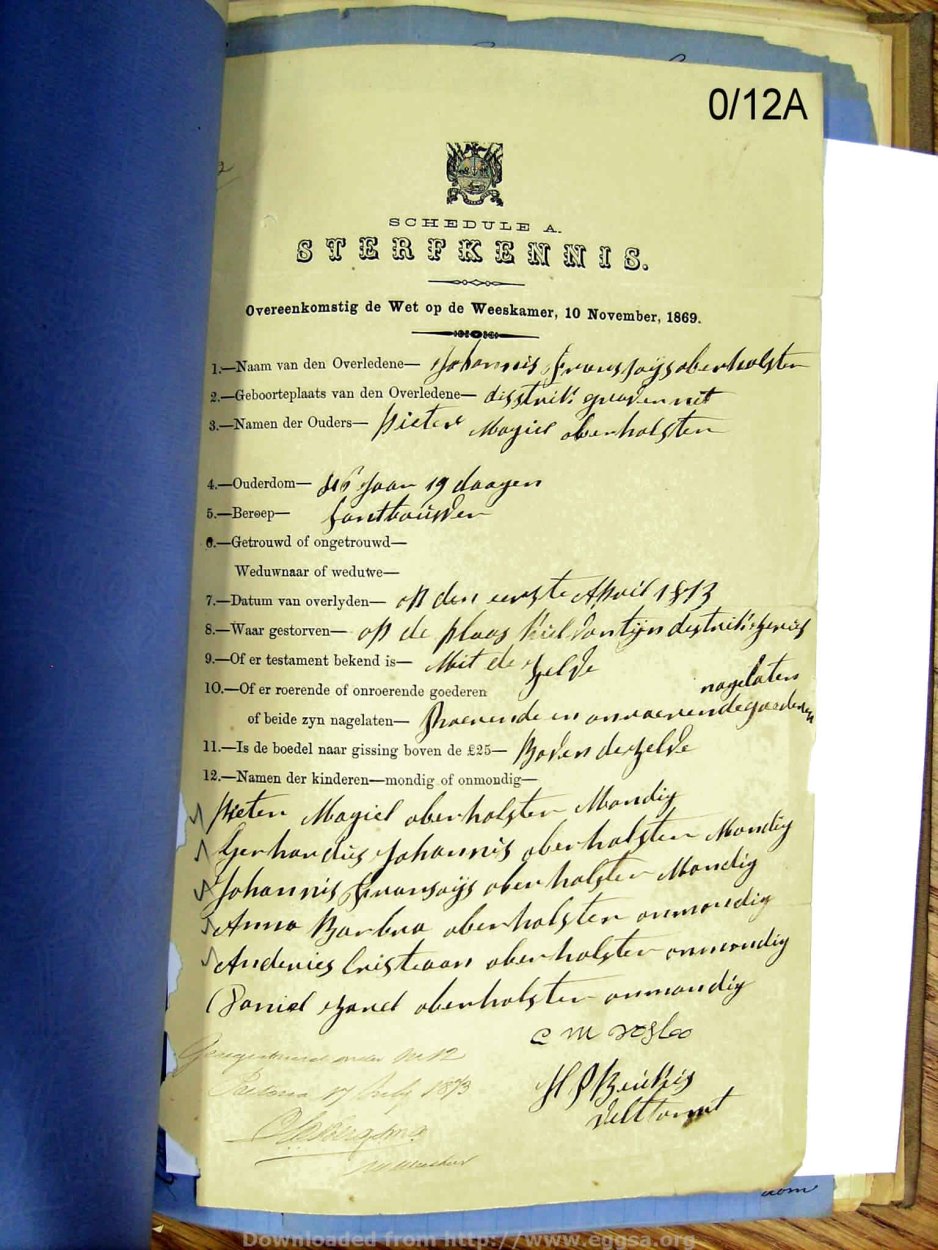 0/12A
SCHEDULE A.
STERFKENNIS.
Overeenkomstig de Wet op de Weeskamer, 10 November, 1869.
1.—Naam van den Overledene— Johannis fransoÿs oberholster
2.—Geboorteplaats van den Overledene— disstrik graavennet
3.—Namen der Ouders— Pieter Magiel oberholster
4.—Ouderdom— Jaar 19 daagen
5.—Beroep— Lantbouwer
6.—Getrouwd of ongetrouwd—
Weduwnaar of weduwe—
7.—Datum van overlyden— op den eerste April 1873
8.—Waar gestorven— op de plaas
9.—Of er testament bekend is— Mit de zelve
10.—Of er roerende of onroerende goederen nagelaten
of beide zyn nagelaten— Roerende en onroerende goederen
11.—Is de boedel naar gissing boven de £25— Boven deszelve
12.—Namen der kinderen—mondig of onmondig—
Pieter Magiel oberholster Mondig
Gerhardus Johannis oberholster Mondig
Johannis fransoÿs oberholster Mondig
Anna Barbra oberholster onmondig
Anderies Cristiaan oberholster onmondig
Daniel oberholster onmondig
C M Vosloo
Geregistreerd onder No 12
Pretoria 17 July 1873
Veltkornet
Downloaded from http://www.eggsa.org